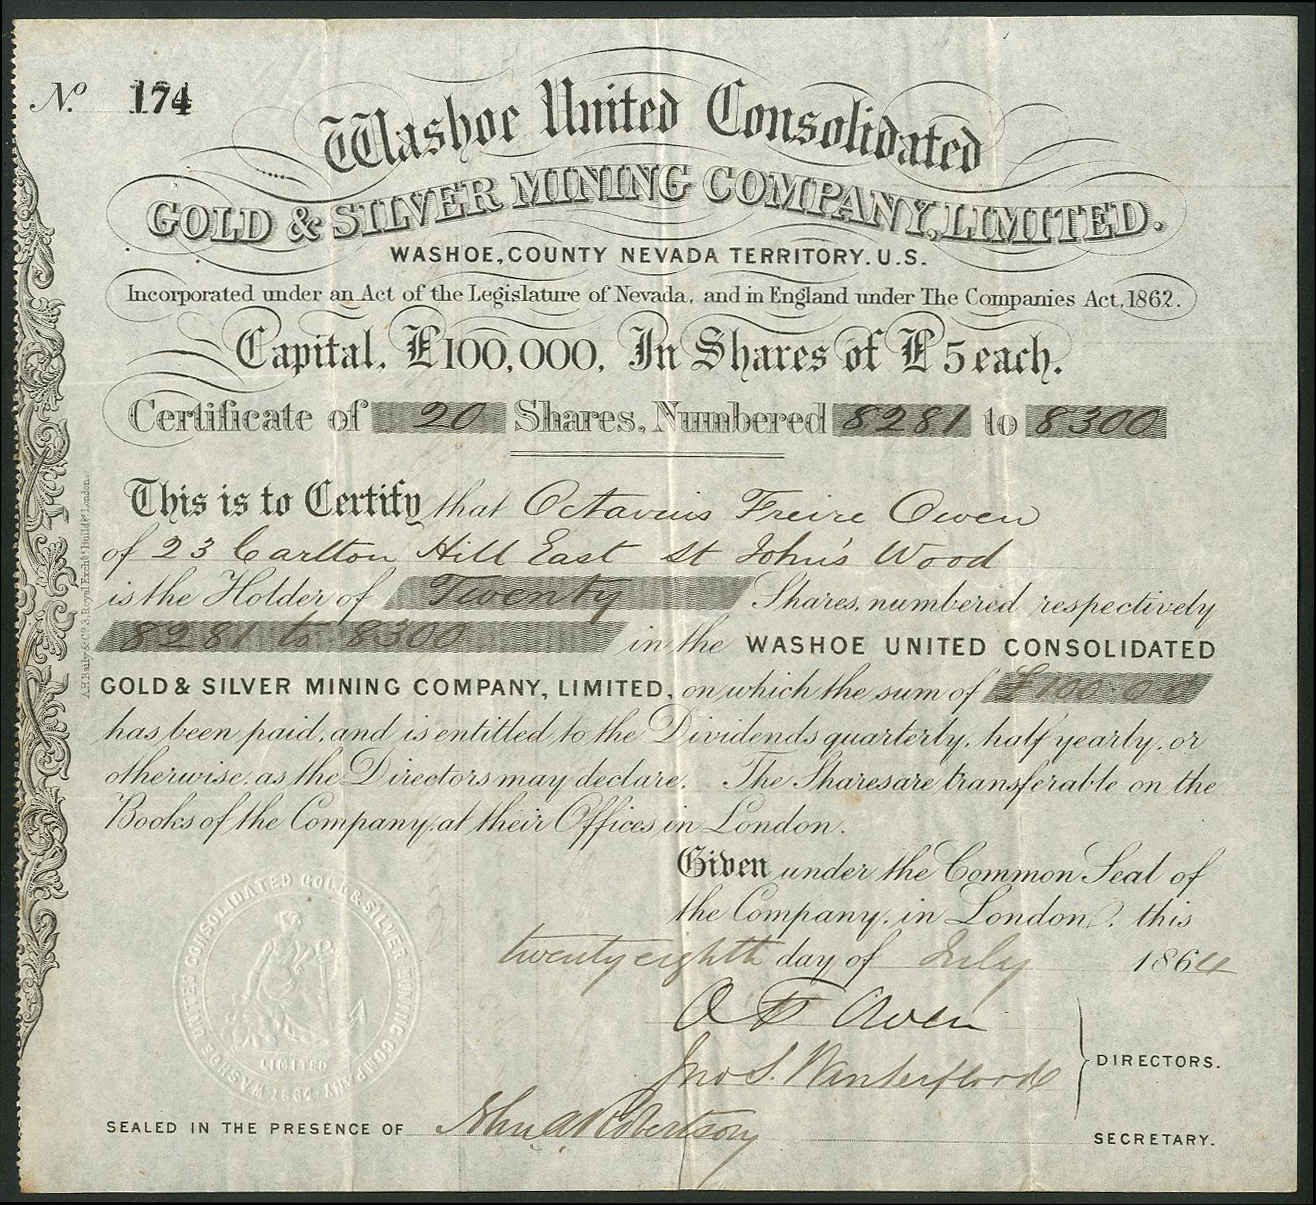 No. 174
Washoe United Consolidated
GOLD & SILVER MINING COMPANY, LIMITED.
WASHOE, COUNTY NEVADA TERRITORY. U.S.
Incorporated under an Act of the Legislature of Nevada, and in England under The Companies Act, 1862.
Capital, £100,000, In Shares of £5 each.
Certificate of 20 Shares, Numbered 8281 to 8300
This is to Certify that Octavius Freire Owen
of 23 Carlton Hill East St John's Wood
is the Holder of Twenty Shares, numbered respectively
8281 to 8300 in the WASHOE UNITED CONSOLIDATED
GOLD & SILVER MINING COMPANY, LIMITED, on which the sum of £100.0.0
has been paid, and is entitled to the Dividends quarterly, half yearly, or
otherwise, as the Directors may declare. The Shares are transferable on the
Books of the Company, at their Offices in London.
Given under the Common Seal of
the Company, in London, this
twenty eighth day of July 1864
O F Owen
Jno S. Winterflood
DIRECTORS.
SEALED IN THE PRESENCE OF John A Robertson
SECRETARY.
WASHOE UNITED CONSOLIDATED GOLD & SILVER MINING COMPANY
LIMITED
1864
A.H. Baily & Co. 3, Royal Exche. Buildgs. London.